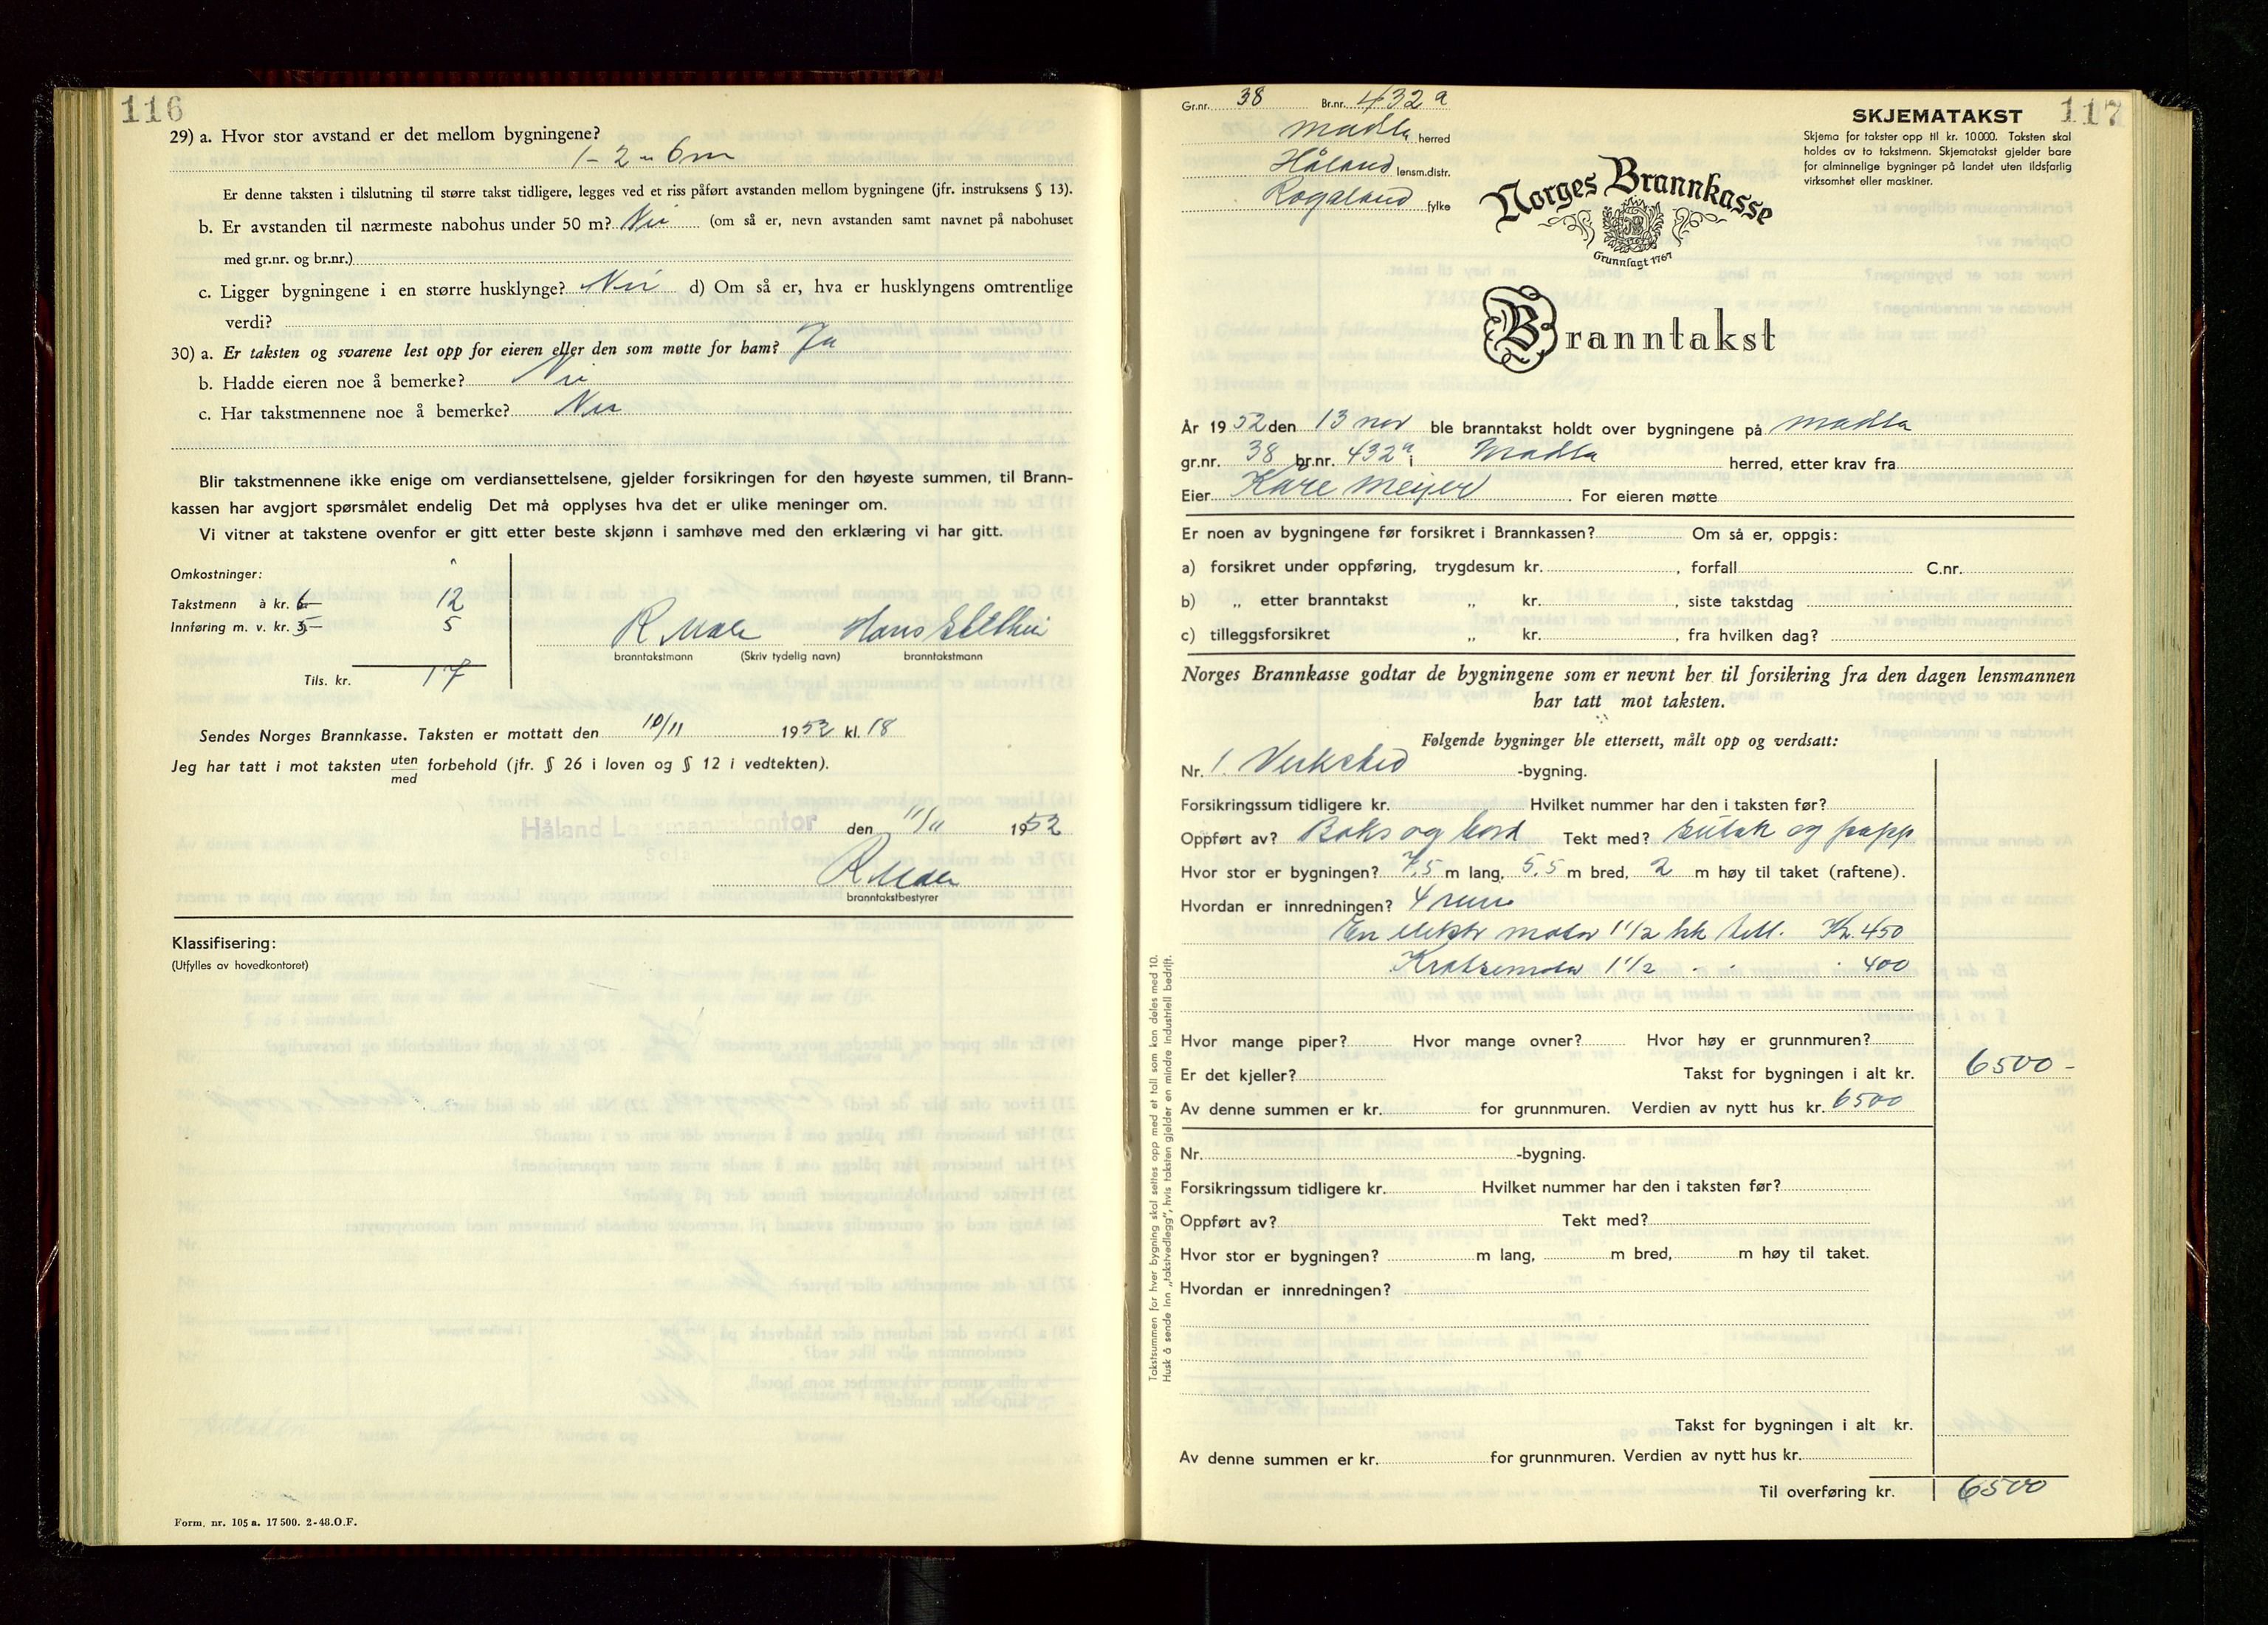 116
29) a. Hvor stor avstand er det mellom bygningene?
1 - 2 = 6 m
Er denne taksten i tilslutning til større takst tidligere, legges ved et riss påført avstanden mellom bygningene (jfr. instruksens § 13).
b. Er avstanden til nærmeste nabohus under 50 m? Nei (om så er, nevn avstanden samt navnet på nabohuset
med gr.nr. og br.nr.)
c. Ligger bygningene i en større husklynge? Nei d) Om så er, hva er husklyngens omtrentlige
verdi?
30) a. Er taksten og svarene lest opp for eieren eller den som møtte for ham? Ja
b. Hadde eieren noe å bemerke? Nei
c. Har takstmennene noe å bemerke? Nei
Blir takstmennene ikke enige om verdiansettelsene, gjelder forsikringen for den høyeste summen, til Brann-
kassen har avgjort spørsmålet endelig Det må opplyses hva det er ulike meninger om.
Vi vitner at takstene ovenfor er gitt etter beste skjønn i samhøve med den erklæring vi har gitt.
Omkostninger:
Takstmenn à kr. 6 12
Innføring m. v. kr. 5
Tils. kr. 17
branntakstmann (Skriv tydelig navn) branntakstmann
Sendes Norges Brannkasse. Taksten er mottatt den 10/11 1952 kl. 18
Jeg har tatt i mot taksten uten
med forbehold (jfr. § 26 i loven og § 12 i vedtekten).
Håland Lensmannskontor den 11/11 1952
Sola
branntakstbestyrer
Klassifisering:
(Utfylles av hovedkontoret)
Form. nr. 105 a. 17 500. 2-48.O.F.
117
Gr.nr. 38 Br.nr. 432 a
Madla herred
Håland lensm.distr.
Rogaland fylke
SKJEMATAKST
Skjema for takster opp til kr. 10 000. Taksten skal
holdes av to takstmenn. Skjematakst gjelder bare
for alminnelige bygninger på landet uten ildsfarlig
virksomhet eller maskiner.
Norges Brannkasse
Grunnlagt 1767
Branntakst
År 1952 den 13 nov ble branntakst holdt over bygningene på Madla
gr.nr. 38 br.nr. 432 a i Madla herred, etter krav fra
Eier Kåre Meijer. For eieren møtte
Er noen av bygningene før forsikret i Brannkassen? Om så er, oppgis:
a) forsikret under oppføring, trygdesum kr. , forfall C.nr.
b) „ etter branntakst „ kr. , siste takstdag
c) tilleggsforsikret „ kr. , fra hvilken dag?
Norges Brannkasse godtar de bygningene som er nevnt her til forsikring fra den dagen lensmannen
har tatt mot taksten.
Følgende bygninger ble ettersett, målt opp og verdsatt:
Nr. 1. Verksted -bygning.
Forsikringssum tidligere kr. Hvilket nummer har den i taksten før?
Oppført av? Boks og bord Tekt med? sutak og papp
Hvor stor er bygningen? 7,5 m lang, 5,5 m bred, 2 m høy til taket (raftene).
Hvordan er innredningen? 4 rum
En elektr motor 1 1/2 hk till. Kr. 450
1 1/2 - - - 400
Hvor mange piper? Hvor mange ovner? Hvor høy er grunnmuren?
Er det kjeller? Takst for bygningen i alt kr. 6500 -
Av denne summen er kr. for grunnmuren. Verdien av nytt hus kr. 6500
Nr. -bygning.
Forsikringssum tidligere kr. Hvilket nummer har den i taksten før?
Oppført av? Tekt med?
Hvor stor er bygningen? m lang, m bred, m høy til taket.
Hvordan er innredningen?
Takst for bygningen i alt kr.
Av denne summen er kr. for grunnmuren. Verdien av nytt hus kr.
Til overføring kr. 6500
Takstsummen for hver bygning skal settes opp med et tall som kan deles med 10.
Husk å sende inn „takstvedlegg", hvis taksten gjelder en mindre industriell bedrift.